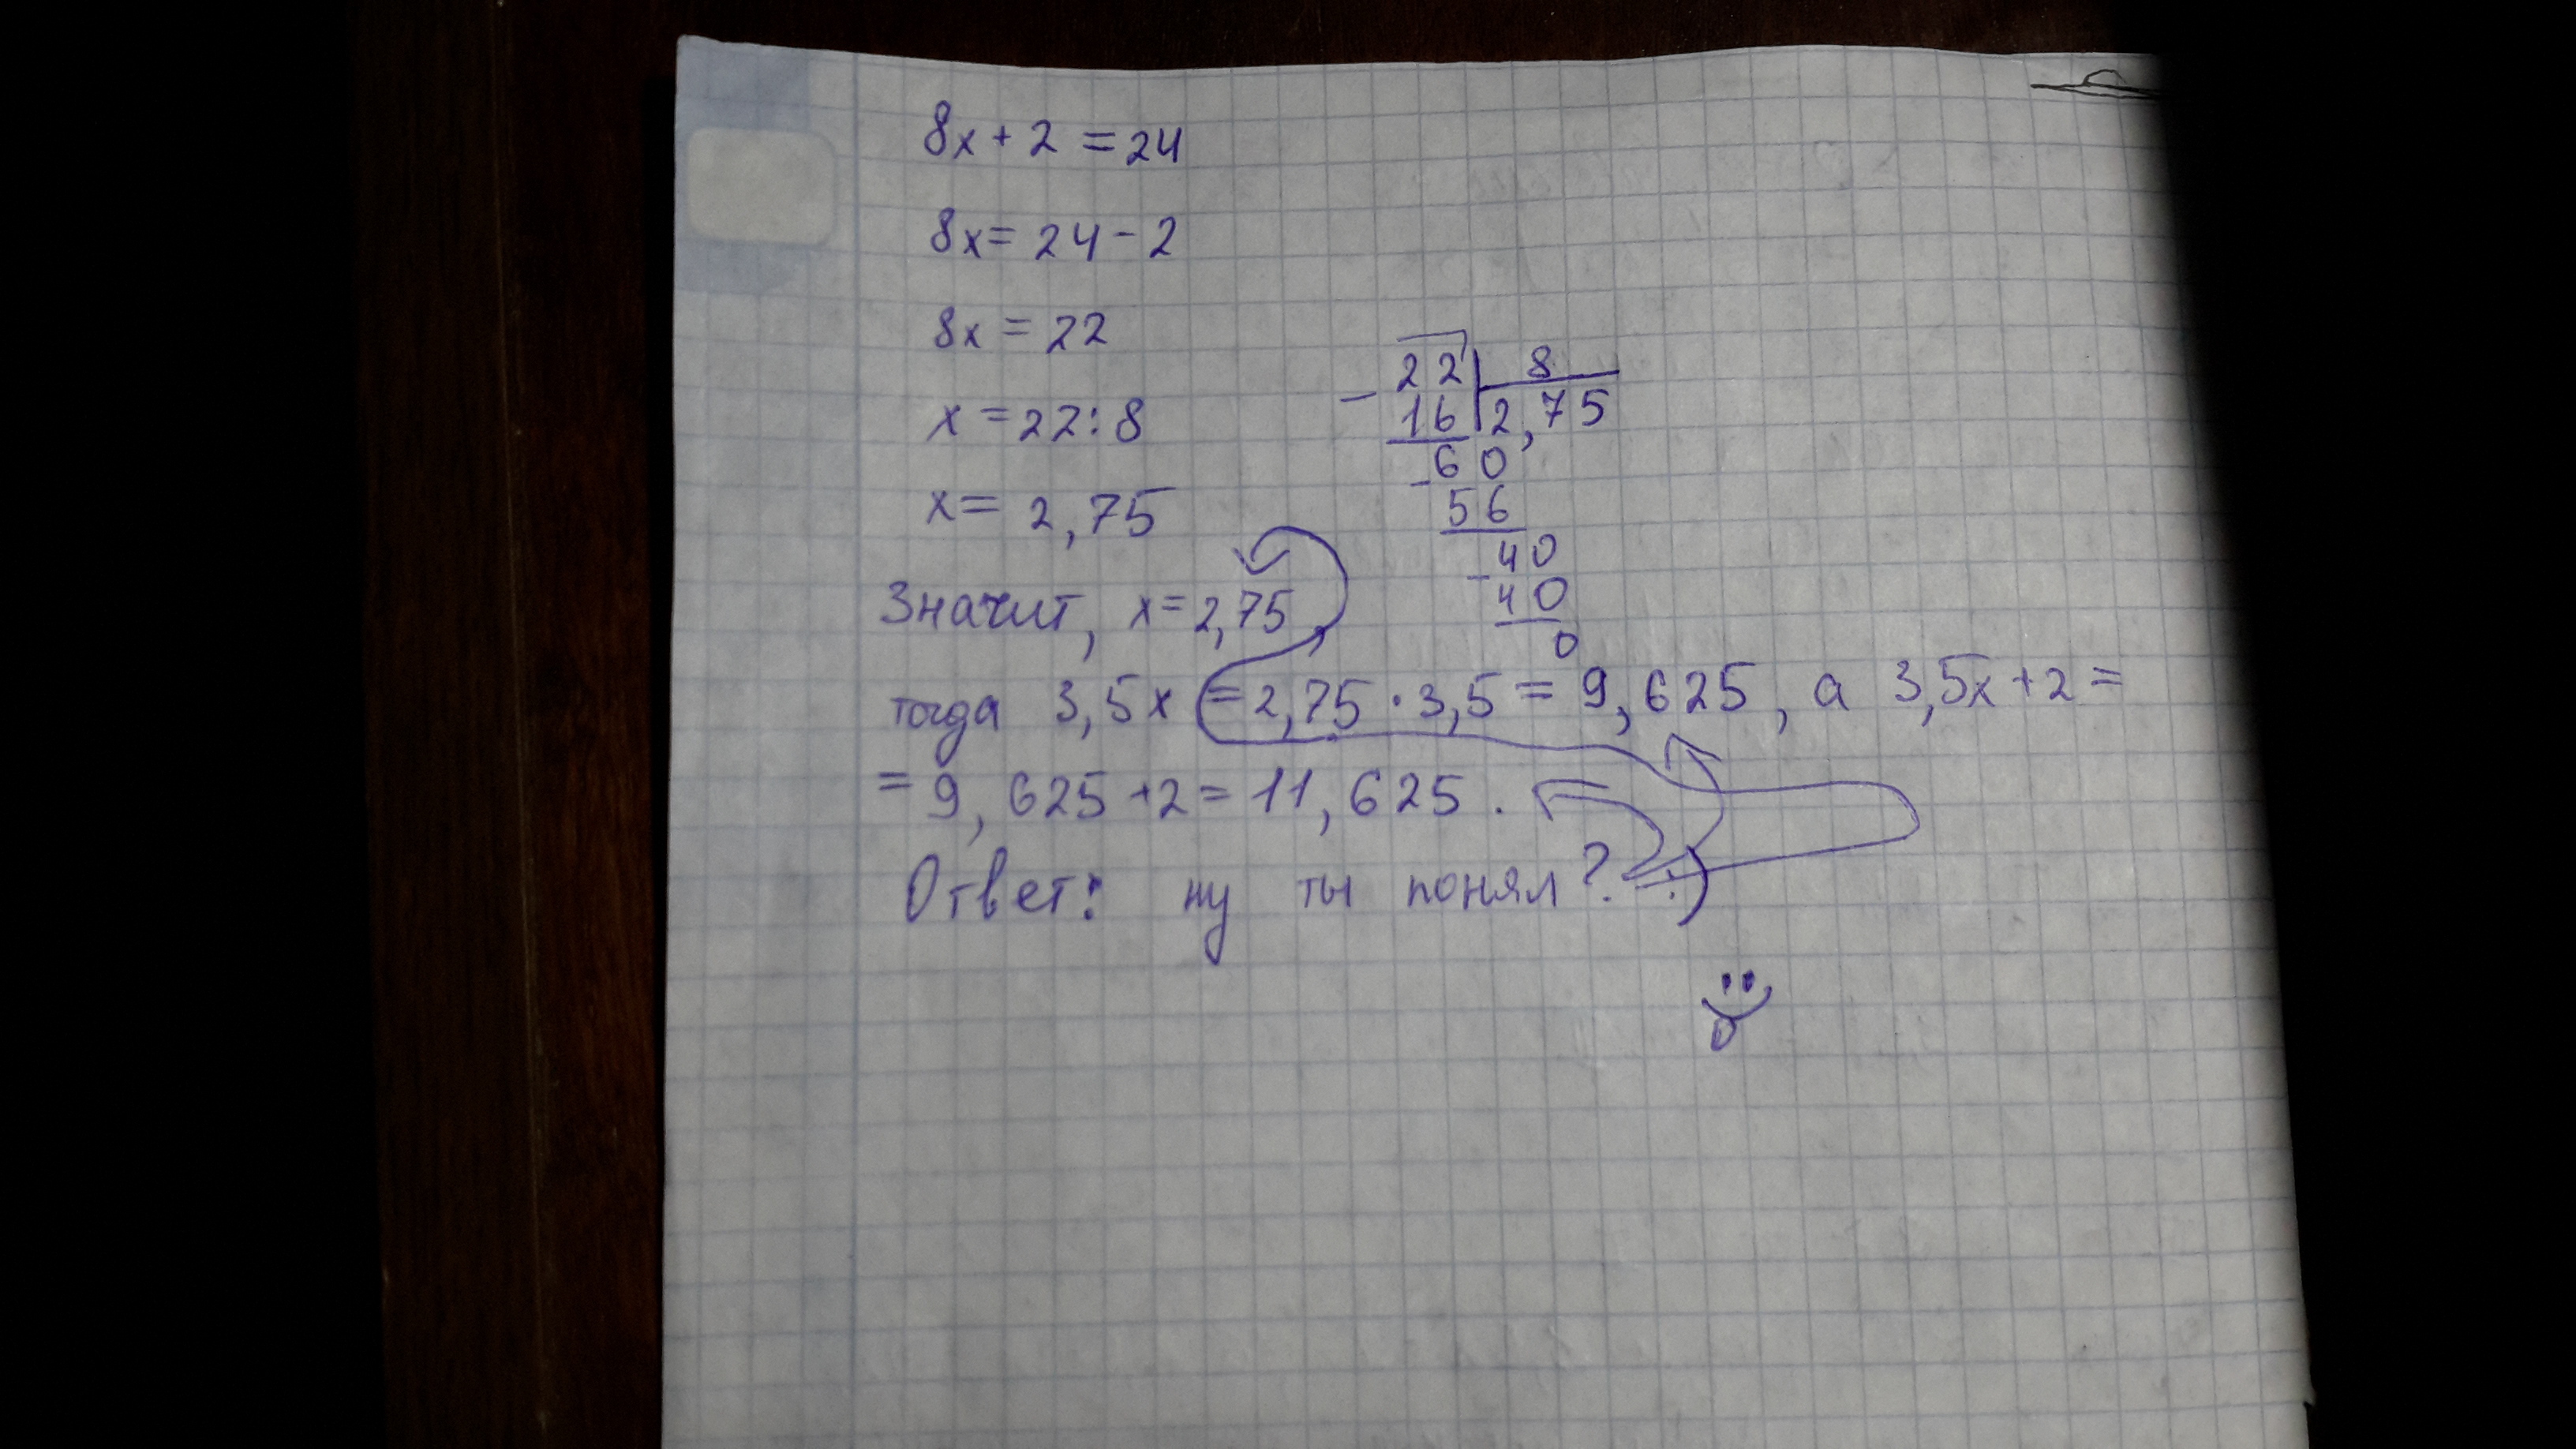 8x + 2 = 24
8x = 24 - 2
8x = 22
x = 22 : 8
x = 2,75
- 22 | 8
16 | 2,75
60
- 56
40
- 40
0
Значит, x = 2,75
тогда 3,5x = 2,75 · 3,5 = 9,625, а 3,5x + 2 =
= 9,625 + 2 = 11,625.
Ответ: ну ты понял? :)